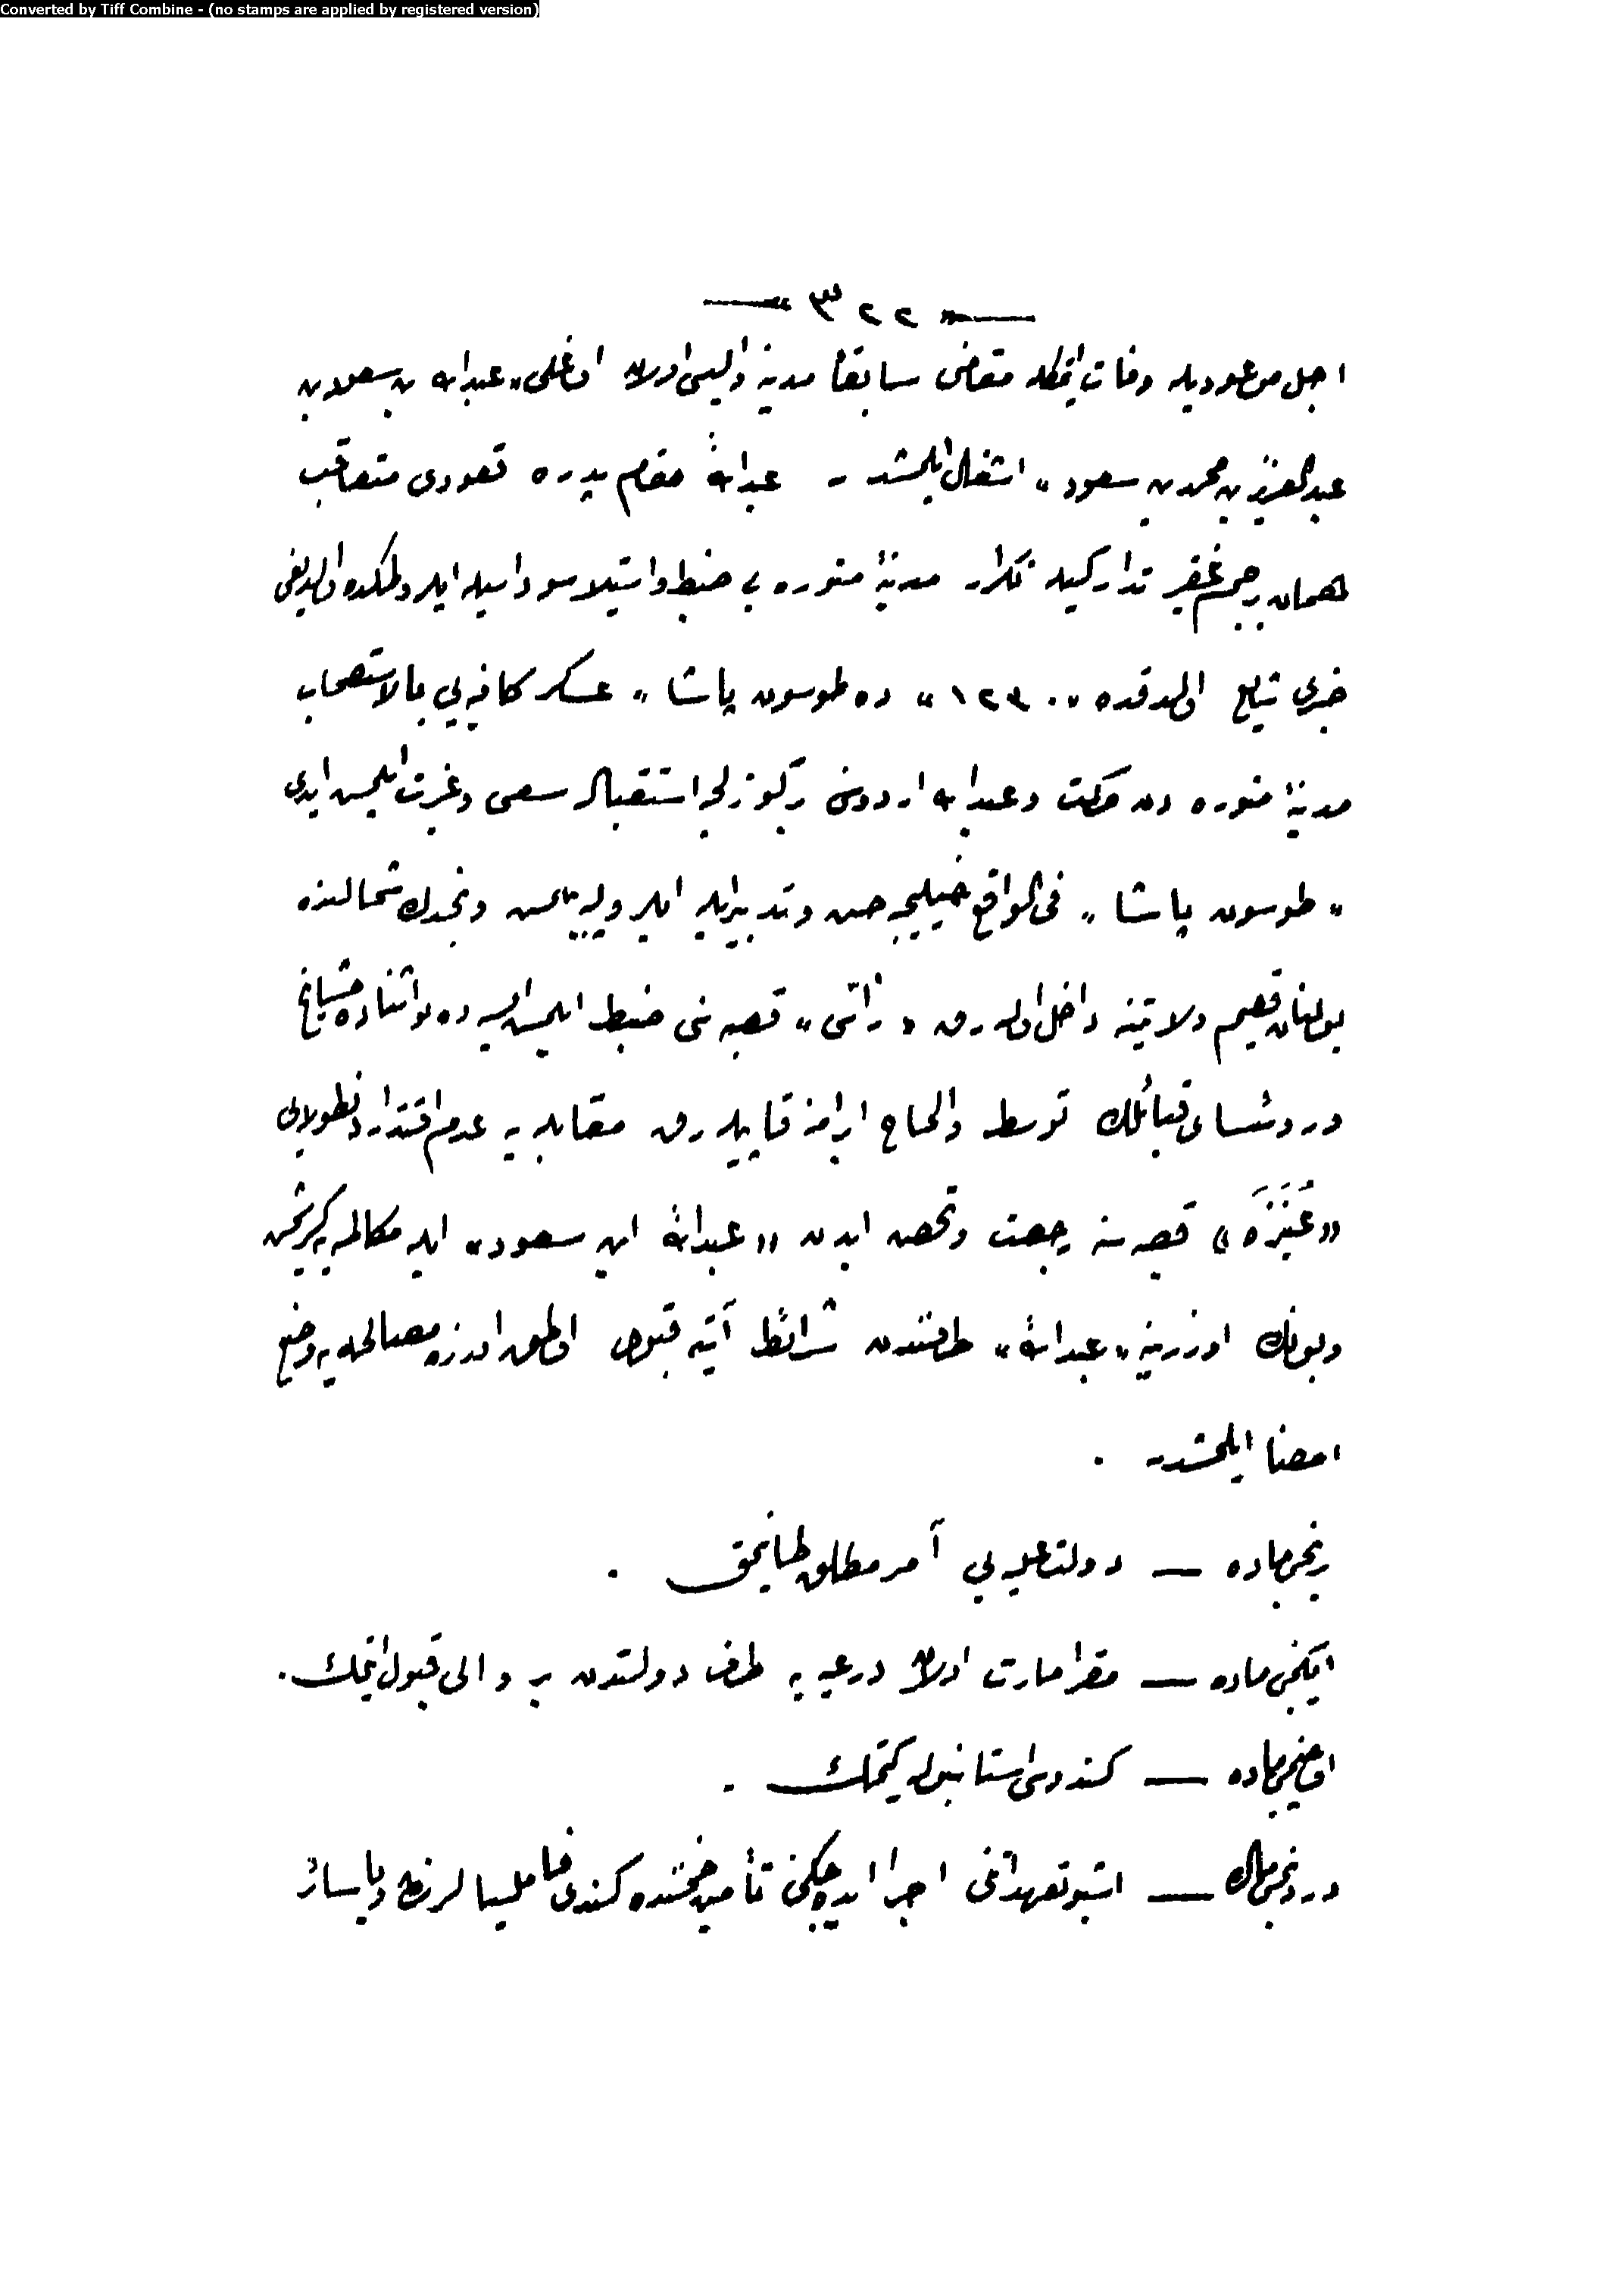 Converted by Tiff Combine - (no stamps are applied by registered version)
— ٣٢٢ —
اجل موعودیله وفات ایتمكله مقامنی سابقا مدینه والیسی اولان اوغلی «عبدالله بن سعود بن
عبدالعزیز بن محمد بن سعود» اشغال ایلمشدر - عبدالله مقام پدره قعودی متعاقب
همان برجم غفیر تداركیله تكرار مدینۀ منوره یی ضبط و استیلا سوداسیله ایلرولمكده اولدیغی
خبری شایع اولدقده «١٢٣٠» ده طوسون پاشا» عسكر كافیه یی بالاستصحاب
مدینۀ منوره دن حركت و عبدالله اردوسنی بركوزلجه استقباله سعی و غیرت ایلمش ایدی
«طوسون پاشا» فی الواقع خیلیجه حسن و تدبیرایله ایلرولیه بیلمش و نجدك شمالنده
بولنان قصیم ولایتنه داخل اوله رق «راس» قصبه سنی ضبط ایلمش ایسه ده بو اثناده مشایخ
و رؤسای قبائلك توسط و الحاح ابرامنه قاپیله رق مقابله یه عدم اقتداردنطولایی
«عُنَیْزَه» قصبه سنه رجعت و تحصن ایدن «عبدالله ابن سعود» ایله مكالمه یه كیریشمش
وبونك اوزرینه «عبدالله» طرفندن شرائط آتیه قبول اولنمق اوزره مصالحه یه وضع
امضا ایلمشدر .
برنجی ماده — دولت علیه یی آمر مطلق طانیمق .
ایكنجی ماده — مقر امارت اولان درعیه یه طرف دولتدن بر والی قبول ایتمك .
اوچنجی ماده — كندوسی استانبوله كیتمك .
دردنجی ماده — اشبو تعهداتنی اجرا ایده جكنی تأمین ضمننده كندی فامیلیا لرندن ویا سائر